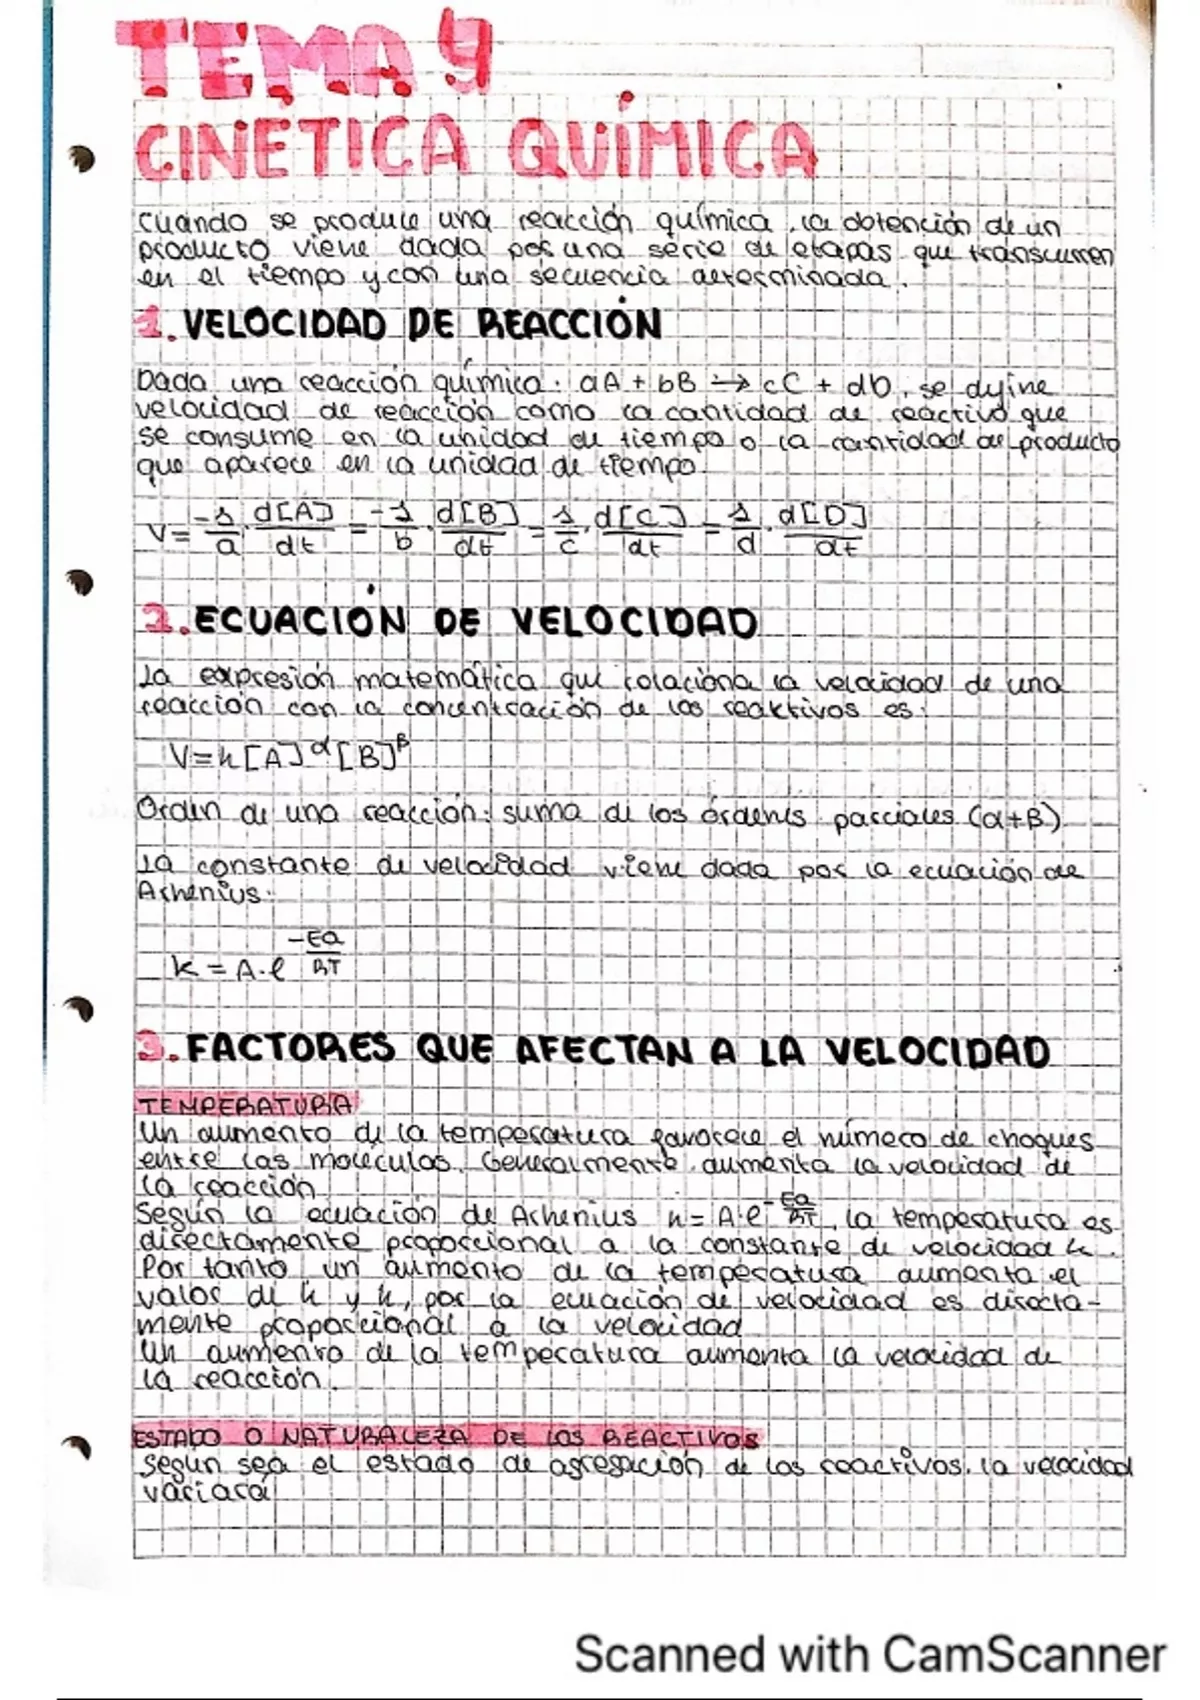 TEMA 4
CINÉTICA QUÍMICA
Cuando se produce una reacción química, la obtención de un
producto viene dada por una serie de etapas que transcurren
en el tiempo y con una secuencia determinada.
1. VELOCIDAD DE REACCIÓN
Dada una reacción química: aA + bB → cC + dD, se define
velocidad de reacción como la cantidad de reactivo que
se consume en la unidad de tiempo o la cantidad de producto
que aparece en la unidad de tiempo.
V = -1/a · d[A]/dt = -1/b · d[B]/dt = 1/c · d[C]/dt = 1/d · d[D]/dt
2. ECUACIÓN DE VELOCIDAD
La expresión matemática que relaciona la velocidad de una
reacción con la concentración de los reaktivos es:
V = k [A]^α [B]^β
Orden de una reacción: suma de los órdenes parciales (α+β)
La constante de velocidad viene dada por la ecuación de
Arhenius:
K = A·e^(-Ea/RT)
3. FACTORES QUE AFECTAN A LA VELOCIDAD
TEMPERATURA
Un aumento de la temperatura favorece el número de choques
entre las moléculas. Generalmente aumenta la velocidad de
la reacción.
Según la ecuación de Arhenius k = A·e^(-Ea/RT), la temperatura es
directamente proporcional a la constante de velocidad k.
Por tanto un aumento de la temperatura aumenta el
valor de k y k, por la ecuación de velocidad es directa-
mente proporcional a la velocidad
Un aumento de la temperatura aumenta la velocidad de
la reacción.
ESTADO O NATURALEZA DE LOS REACTIVOS
Según sea el estado de agregación de los reactivos, la velocidad
variará
Scanned with CamScanner